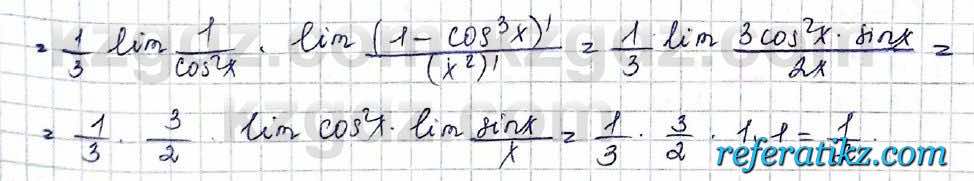 = 1/3 lim 1/cos²x · lim (1 - cos³x)'/(x²)' = 1/3 lim 3cos²x · sinx/2x =
= 1/3 · 3/2 · lim cos²x · lim sinx/x = 1/3 · 3/2 · 1 · 1 = 1/
referatikz.com